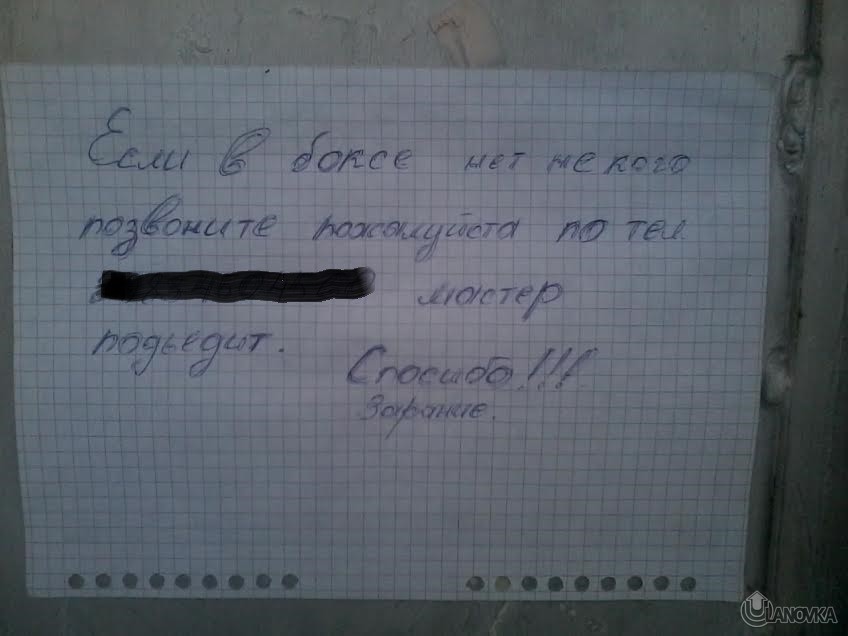 Если в боксе нет не кого
позвоните пожалуйста по тел
мастер
подьедит.
Спосибо!!!
Зарание.
ULANOVKA